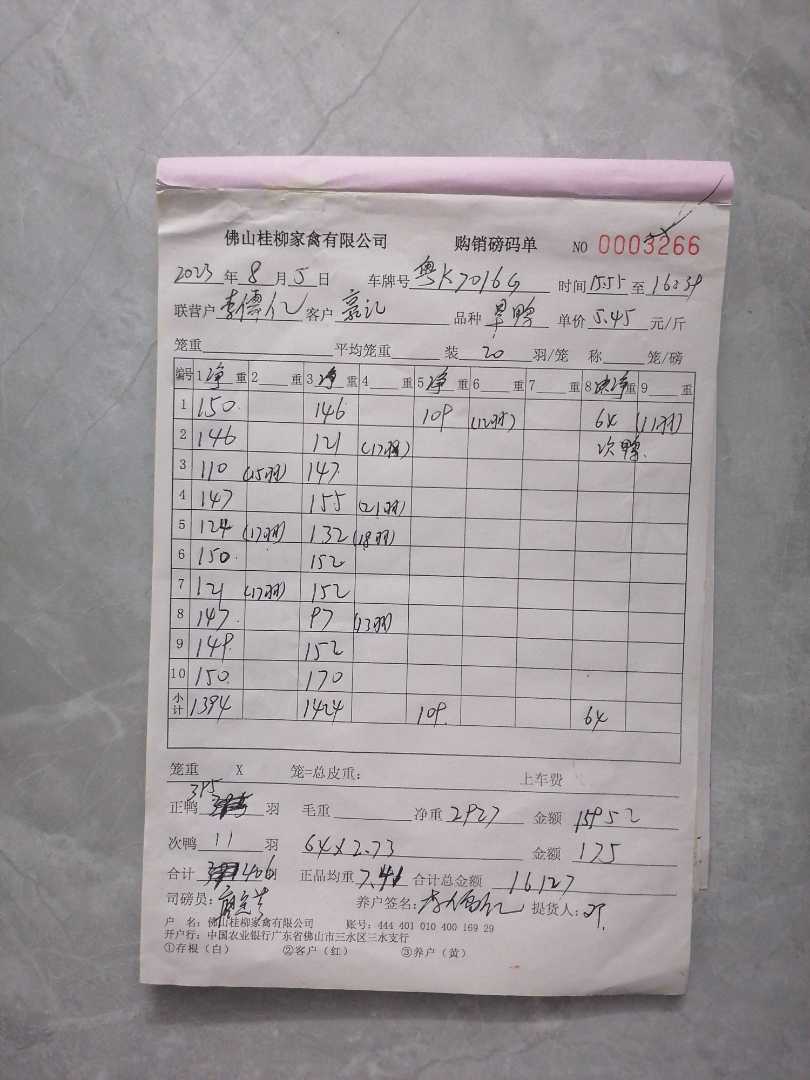 佛山桂柳家禽有限公司 购销磅码单 NO 0003266
2023 年 8 月 5 日 车牌号 粤K7016G 时间 15:55 至 16:39
联营户 客户 嘉记 品种 旱鸭 单价 5.45 元/斤
笼重 平均笼重 装 20 羽/笼 称 笼/磅
编号 1 净 重 2 重 3 净 重 4 重 5 净 重 6 重 7 重 8 次净 重 9 重
1 150 146 109 (12羽) 64 (11羽)
2 146 121 (17羽) 次鸭
3 110 (15羽) 147
4 147 155 (21羽)
5 124 (17羽) 132 (18羽)
6 150 152
7 121 (17羽) 152
8 147 97 (13羽)
9 149 152
10 150 170
小计 1394 1424 109 64
笼重 X 笼=总皮重: 上车费
正鸭 395 羽 毛重 净重 2927 金额 15952
次鸭 11 羽 64×2.73 金额 175
合计 406 羽 正品均重 7.41 合计总金额 16127
司磅员: 养户签名: 提货人:
户 名: 佛山桂柳家禽有限公司 账号: 444 401 010 400 169 29
开户行: 中国农业银行广东省佛山市三水区三水支行
①存根(白) ②客户(红) ③养户(黄)